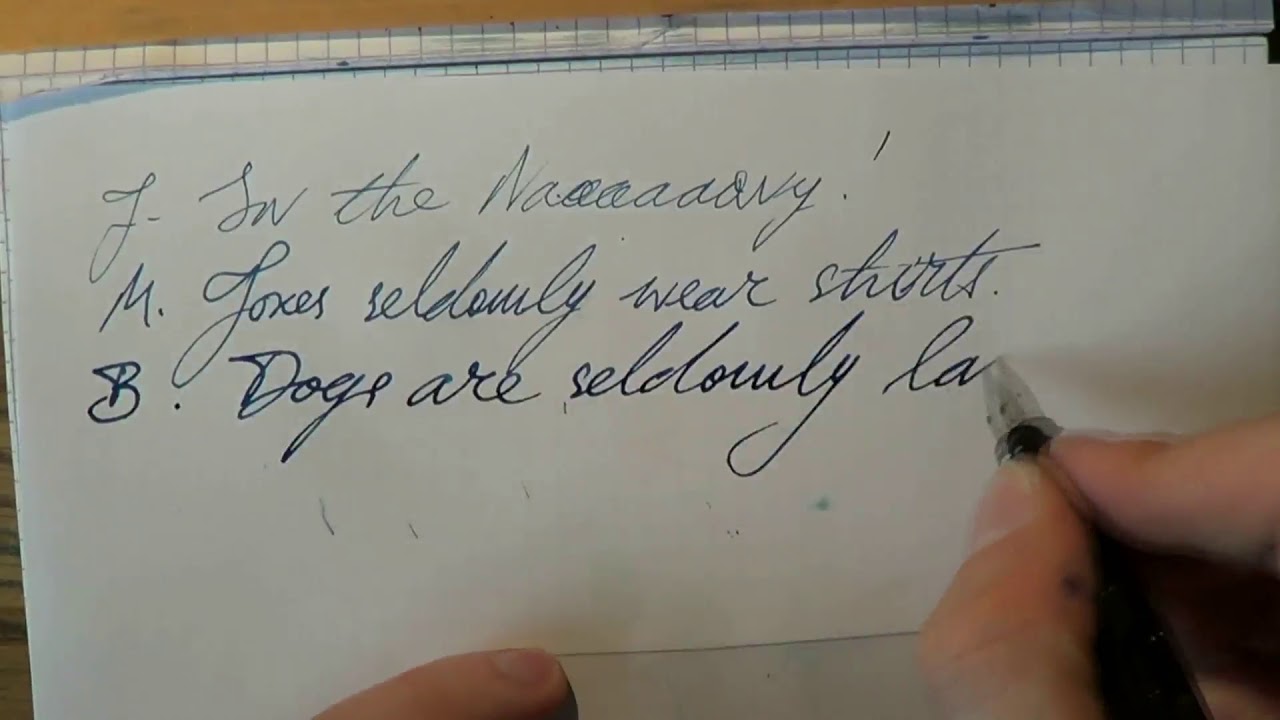 F. In the Naaaaaaavy!
M. Foxes seldomly wear shorts.
B. Dogs are seldomly la